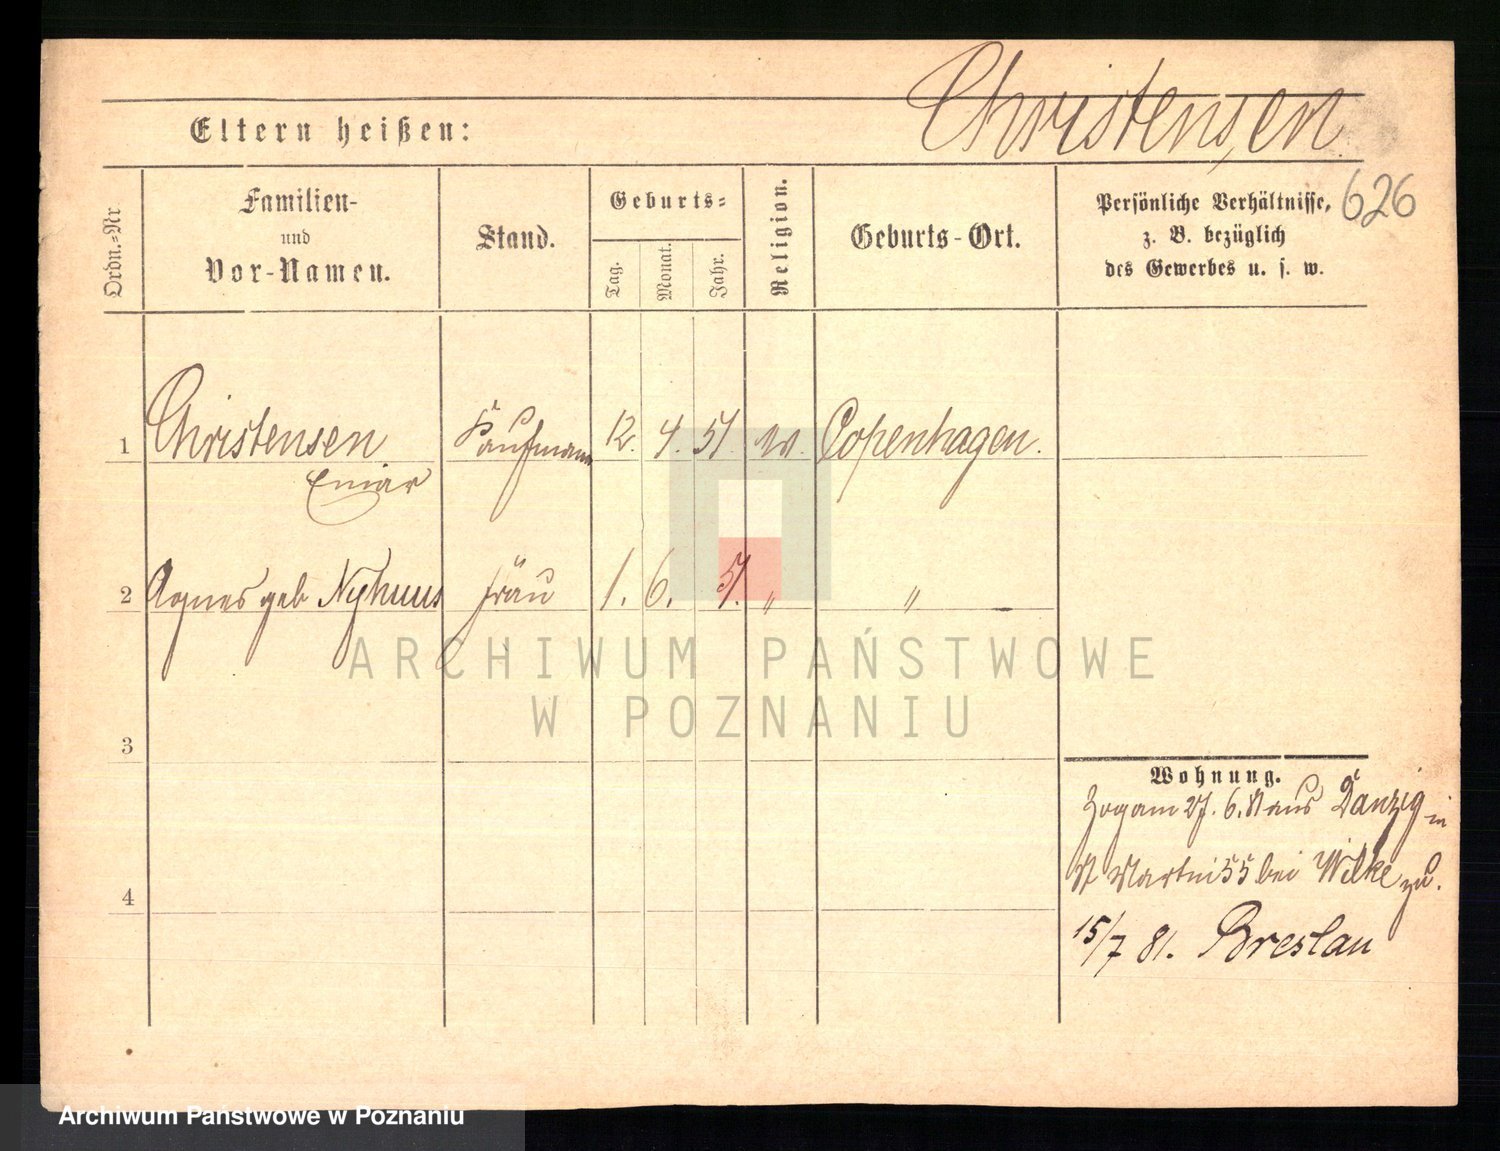 Christensen
Eltern heißen:
626
Ordn.-Nr
Familien-
und
Vor-Namen.
Stand.
Geburts-
Tag.
Monat.
Jahr.
Religion.
Geburts-Ort.
Persönliche Verhältnisse,
z. B. bezüglich
des Gewerbes u. s. w.
1 Christensen Kaufmann 12. 4. 51. Copenhagen.
2 Agnes geb Nyhuus Frau 1. 6. 51. " "
3
Wohnung.
Zog am 27. 6. 81 aus Danzig in
St Martin 55 bei Wilke zu.
4
15/7 81. Breslau
ARCHIWUM PAŃSTWOWE
W POZNANIU
Archiwum Państwowe w Poznaniu